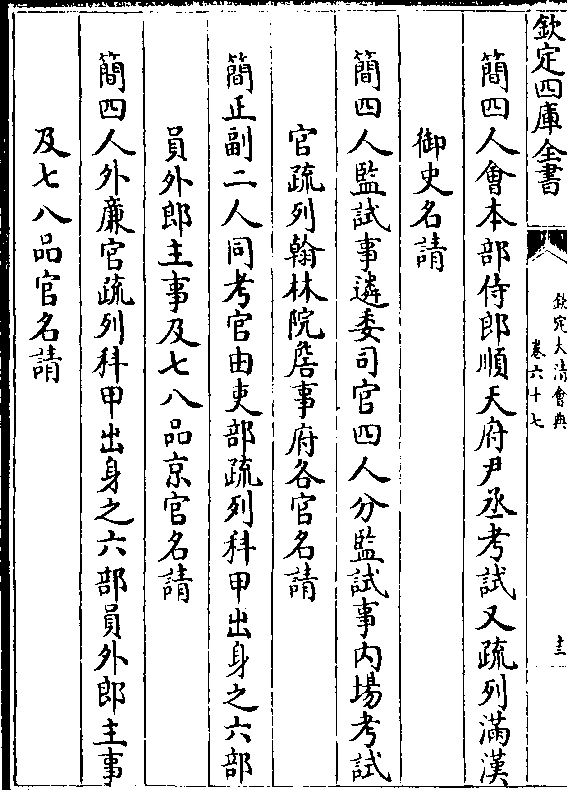 欽定四庫全書
欽定大清會典
卷六十七
簡四人會本部侍郎順天府尹丞考試又疏列滿漢
御史名請
簡四人監試事遴委司官四人分監試事內場考試
官疏列翰林院詹事府各官名請
簡正副二人同考官由吏部疏列科甲出身之六部
員外郎主事及七八品京官名請
簡四人外廉官疏列科甲出身之六部員外郎主事
及七八品官名請